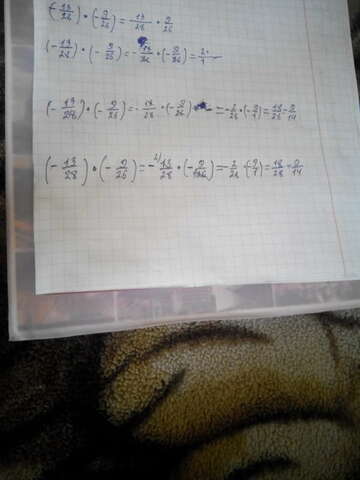 (-13/26) · (-9/26) = -13/28 · 9/26
(-13/28) · (-9/25) = - · (-9/26) =
(-13/28) · (-9/26) = -18/28 · (-9/26) = -2/25 · (-9/1) = 18/25 = 9/14
(-13/28) · (-9/26) = -13/28 · (-9/126) = -2/28 · (-9/1) = 18/28 = 9/14